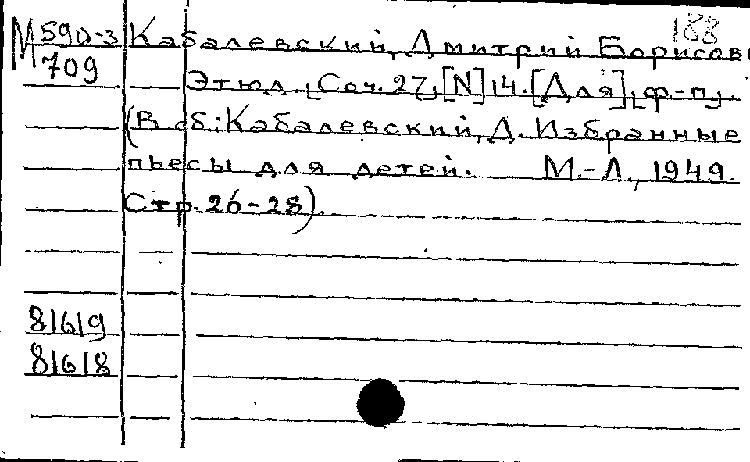 188
М 590-3 Кабалевский, Дмитрий Борисов
М 709
Этюд. [Соч. 27, [N] 14. [Для], ф-п].
(В сб.: Кабалевский, Д. Избранные
пьесы для детей. М.-Л., 1949.
Стр. 26-28).
81619
81618